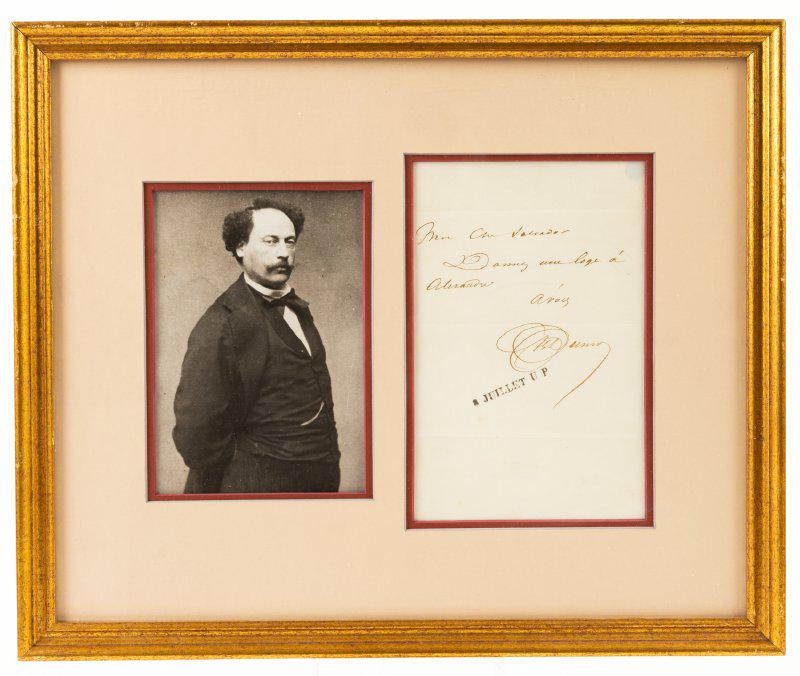 Mon Cher Salvador
Donnez une loge à
Alexandre
À vous
Al Dumas
8 JUILLET U P